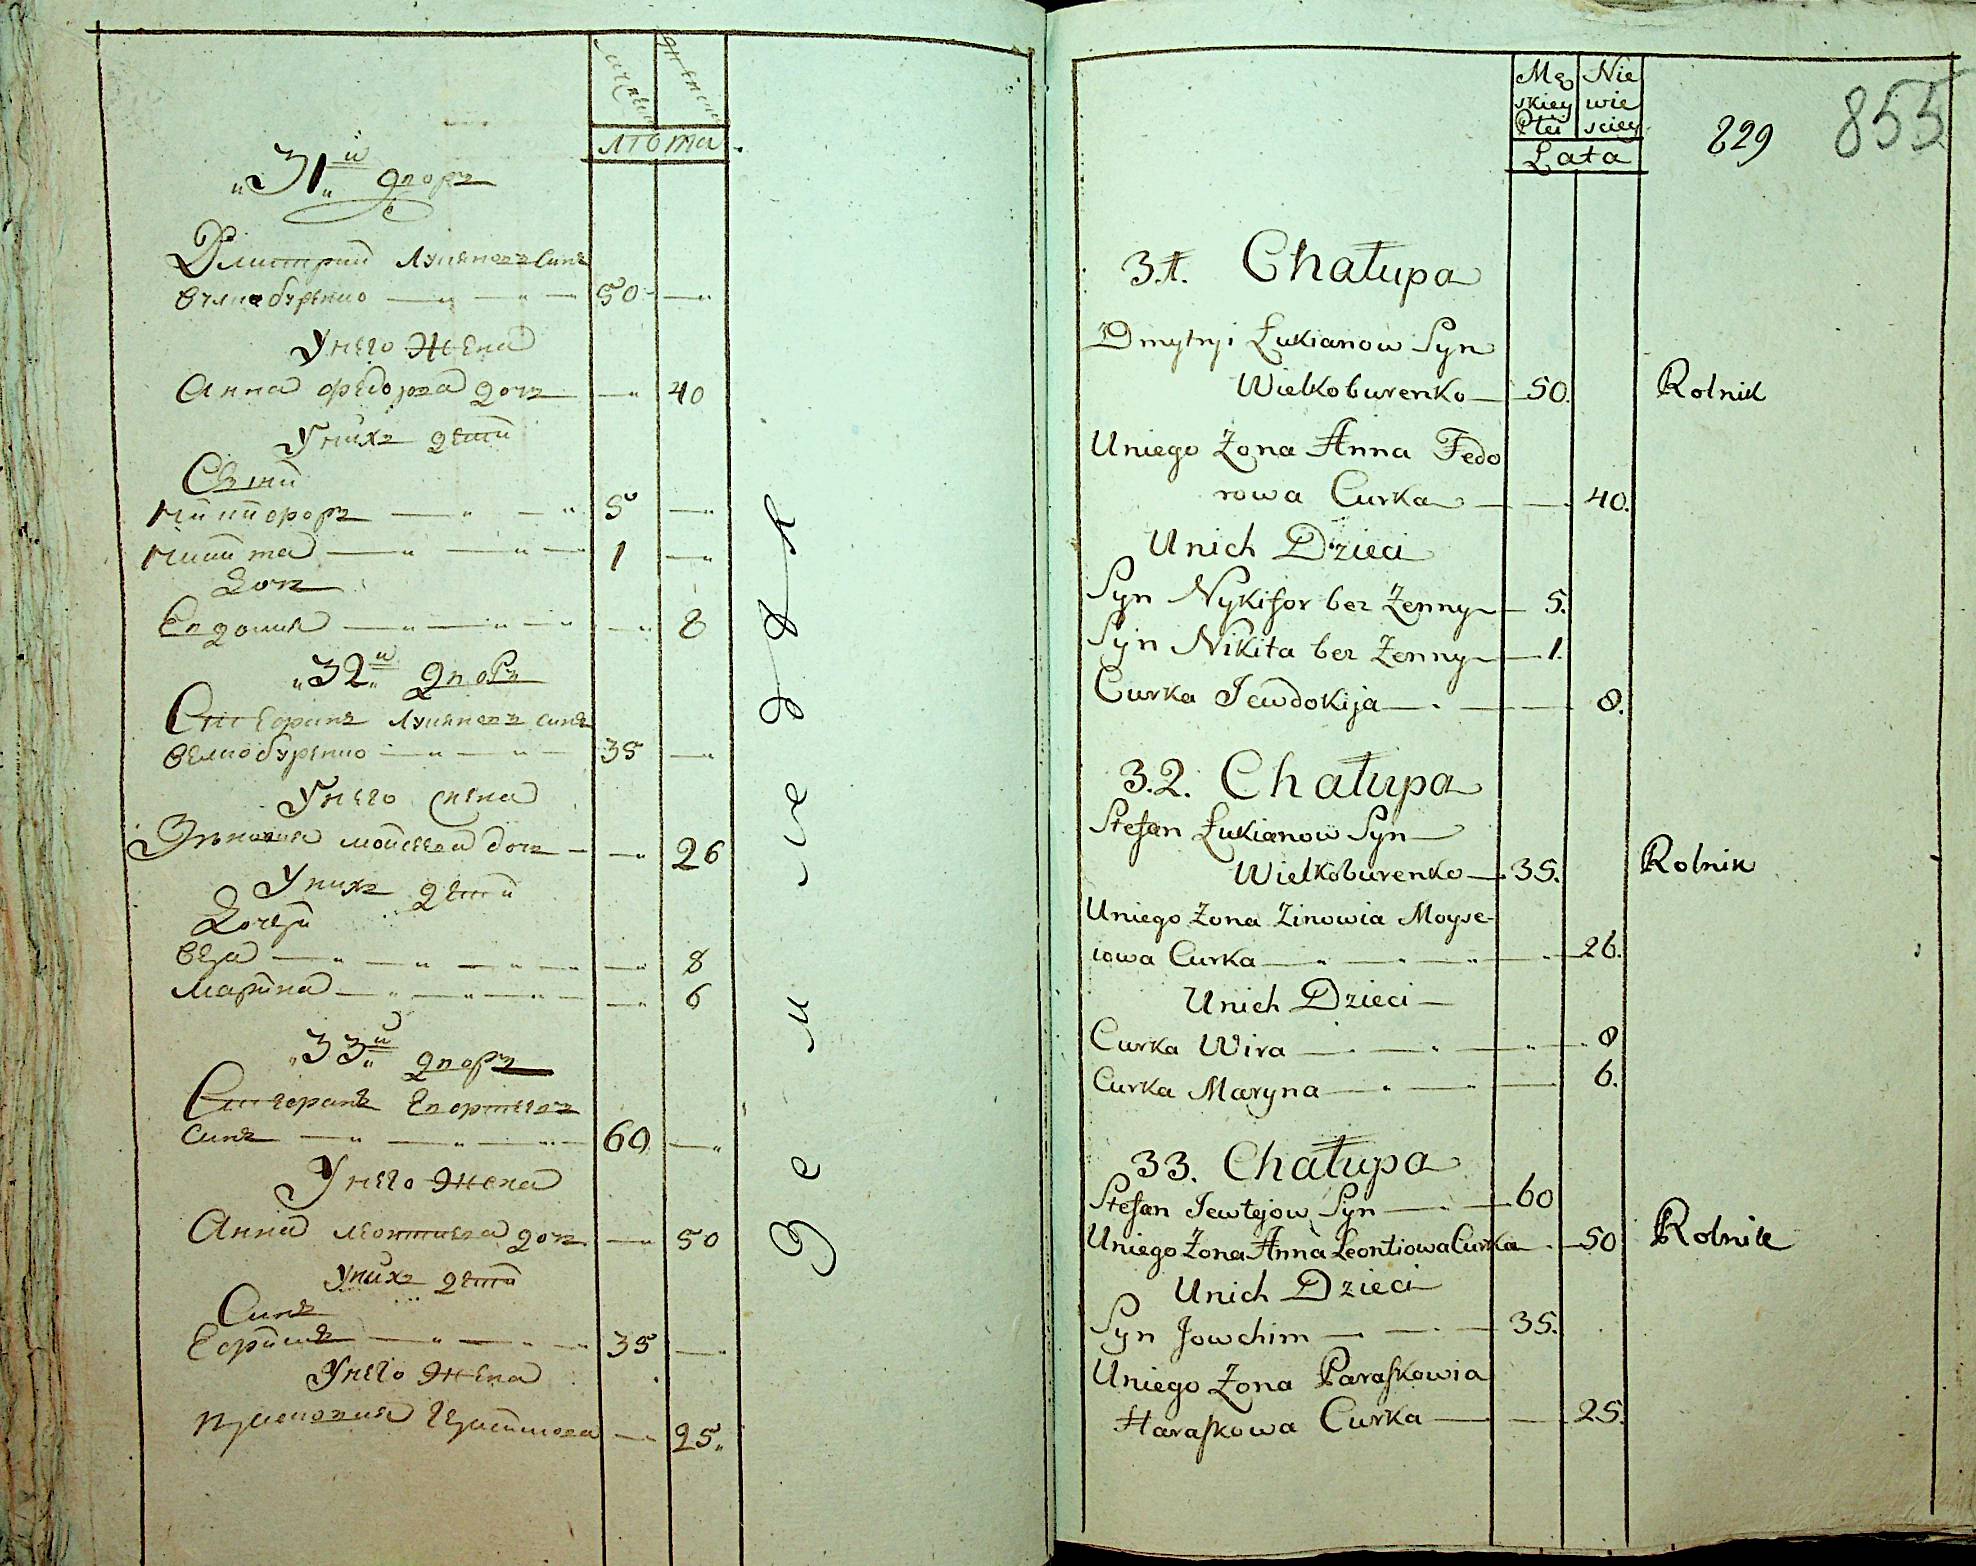 лѣта
„31„й дворъ
Дмитрий Лукяновъ синъ
велкобуренко 50
У него жена
Анна федорова дочь 40
У нихъ дети
Сыни
Никифоръ 5
Никита 1
Дочь
Евдокия 8
„32„й дворъ
Стефанъ Лукяновъ синъ
велкобуренко 35
У него жена
Зѣновия мойсеева дочь 26
У нихъ дети
Дочери
вера 8
Марина 6
„33„й дворъ
Стефанъ Евтеевъ
синъ 60
У него жена
Анна леонтиева дочь 50
У нихъ дети
Синъ
Ефимъ 35
У него жена
25
Mę Nie
skiey wie
Płci sciey
Lata
829
855
31. Chałupa
Dmytryi Łukianow Syn
Wielkoburenko 50. Rolnik
Uniego Żona Anna Fedo
rowa Curka 40.
Unich Dzieci
Syn Nykifor bez Zenny 5.
Syn Nikita bez Zenny 1.
Curka Jewdokija 8.
32. Chałupa
Stefan Łukianow Syn
Wielkoburenko 35. Rolnik
Uniego Żona Zinowia Moyse-
iowa Curka 26.
Unich Dzieci
Curka Wira 8
Curka Maryna 6.
33. Chałupa
Stefan Jewtejow Syn 60
Uniego Żona Anna Leontiowa Curka 50 Rolnik
Unich Dzieci
Syn Jowchim 35.
Uniego Żona Paraskowia
Haraskowa Curka 25.